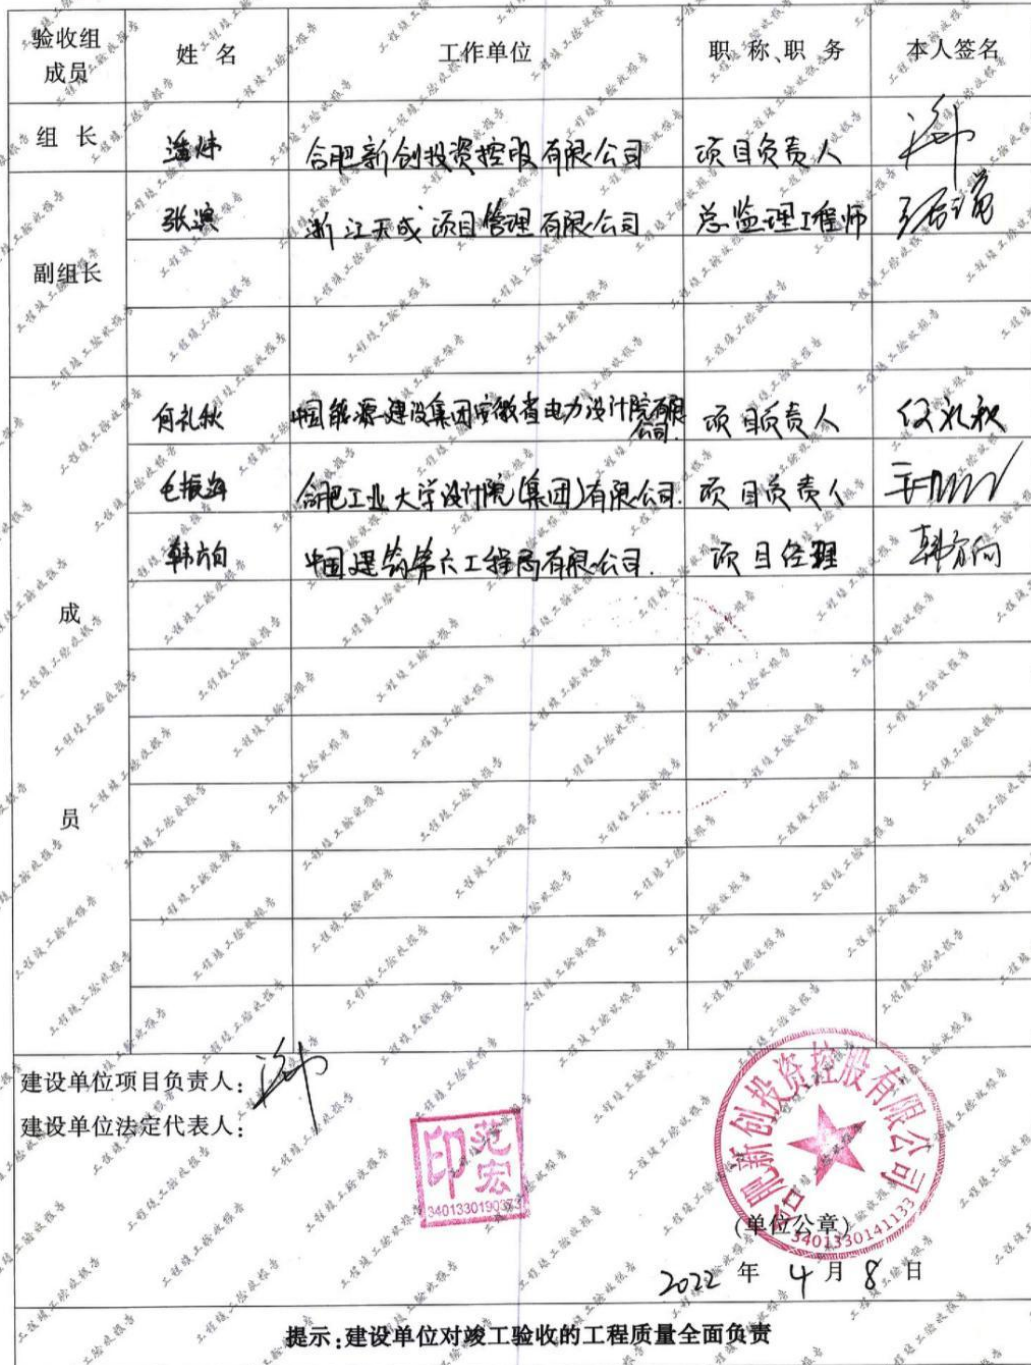 验收组成员 姓名 工作单位 职称、职务 本人签名
组长 潘炜 合肥新创投资控股有限公司 项目负责人
张滨 浙江天成项目管理有限公司 总监理工程师
副组长
何礼秋 中国能源建设集团安徽省电力设计院有限公司. 项目负责人 何礼秋
毛振海 合肥工业大学设计院(集团)有限公司. 项目负责人
韩方向 中国建筑第六工程局有限公司. 项目经理 韩方向
成
员
建设单位项目负责人:
建设单位法定代表人:
范宏印
3401330190373
合肥新创投资控股有限公司
(单位公章)
3401330141133
2022 年 4 月 8 日
提示:建设单位对竣工验收的工程质量全面负责
工程竣工验收报告